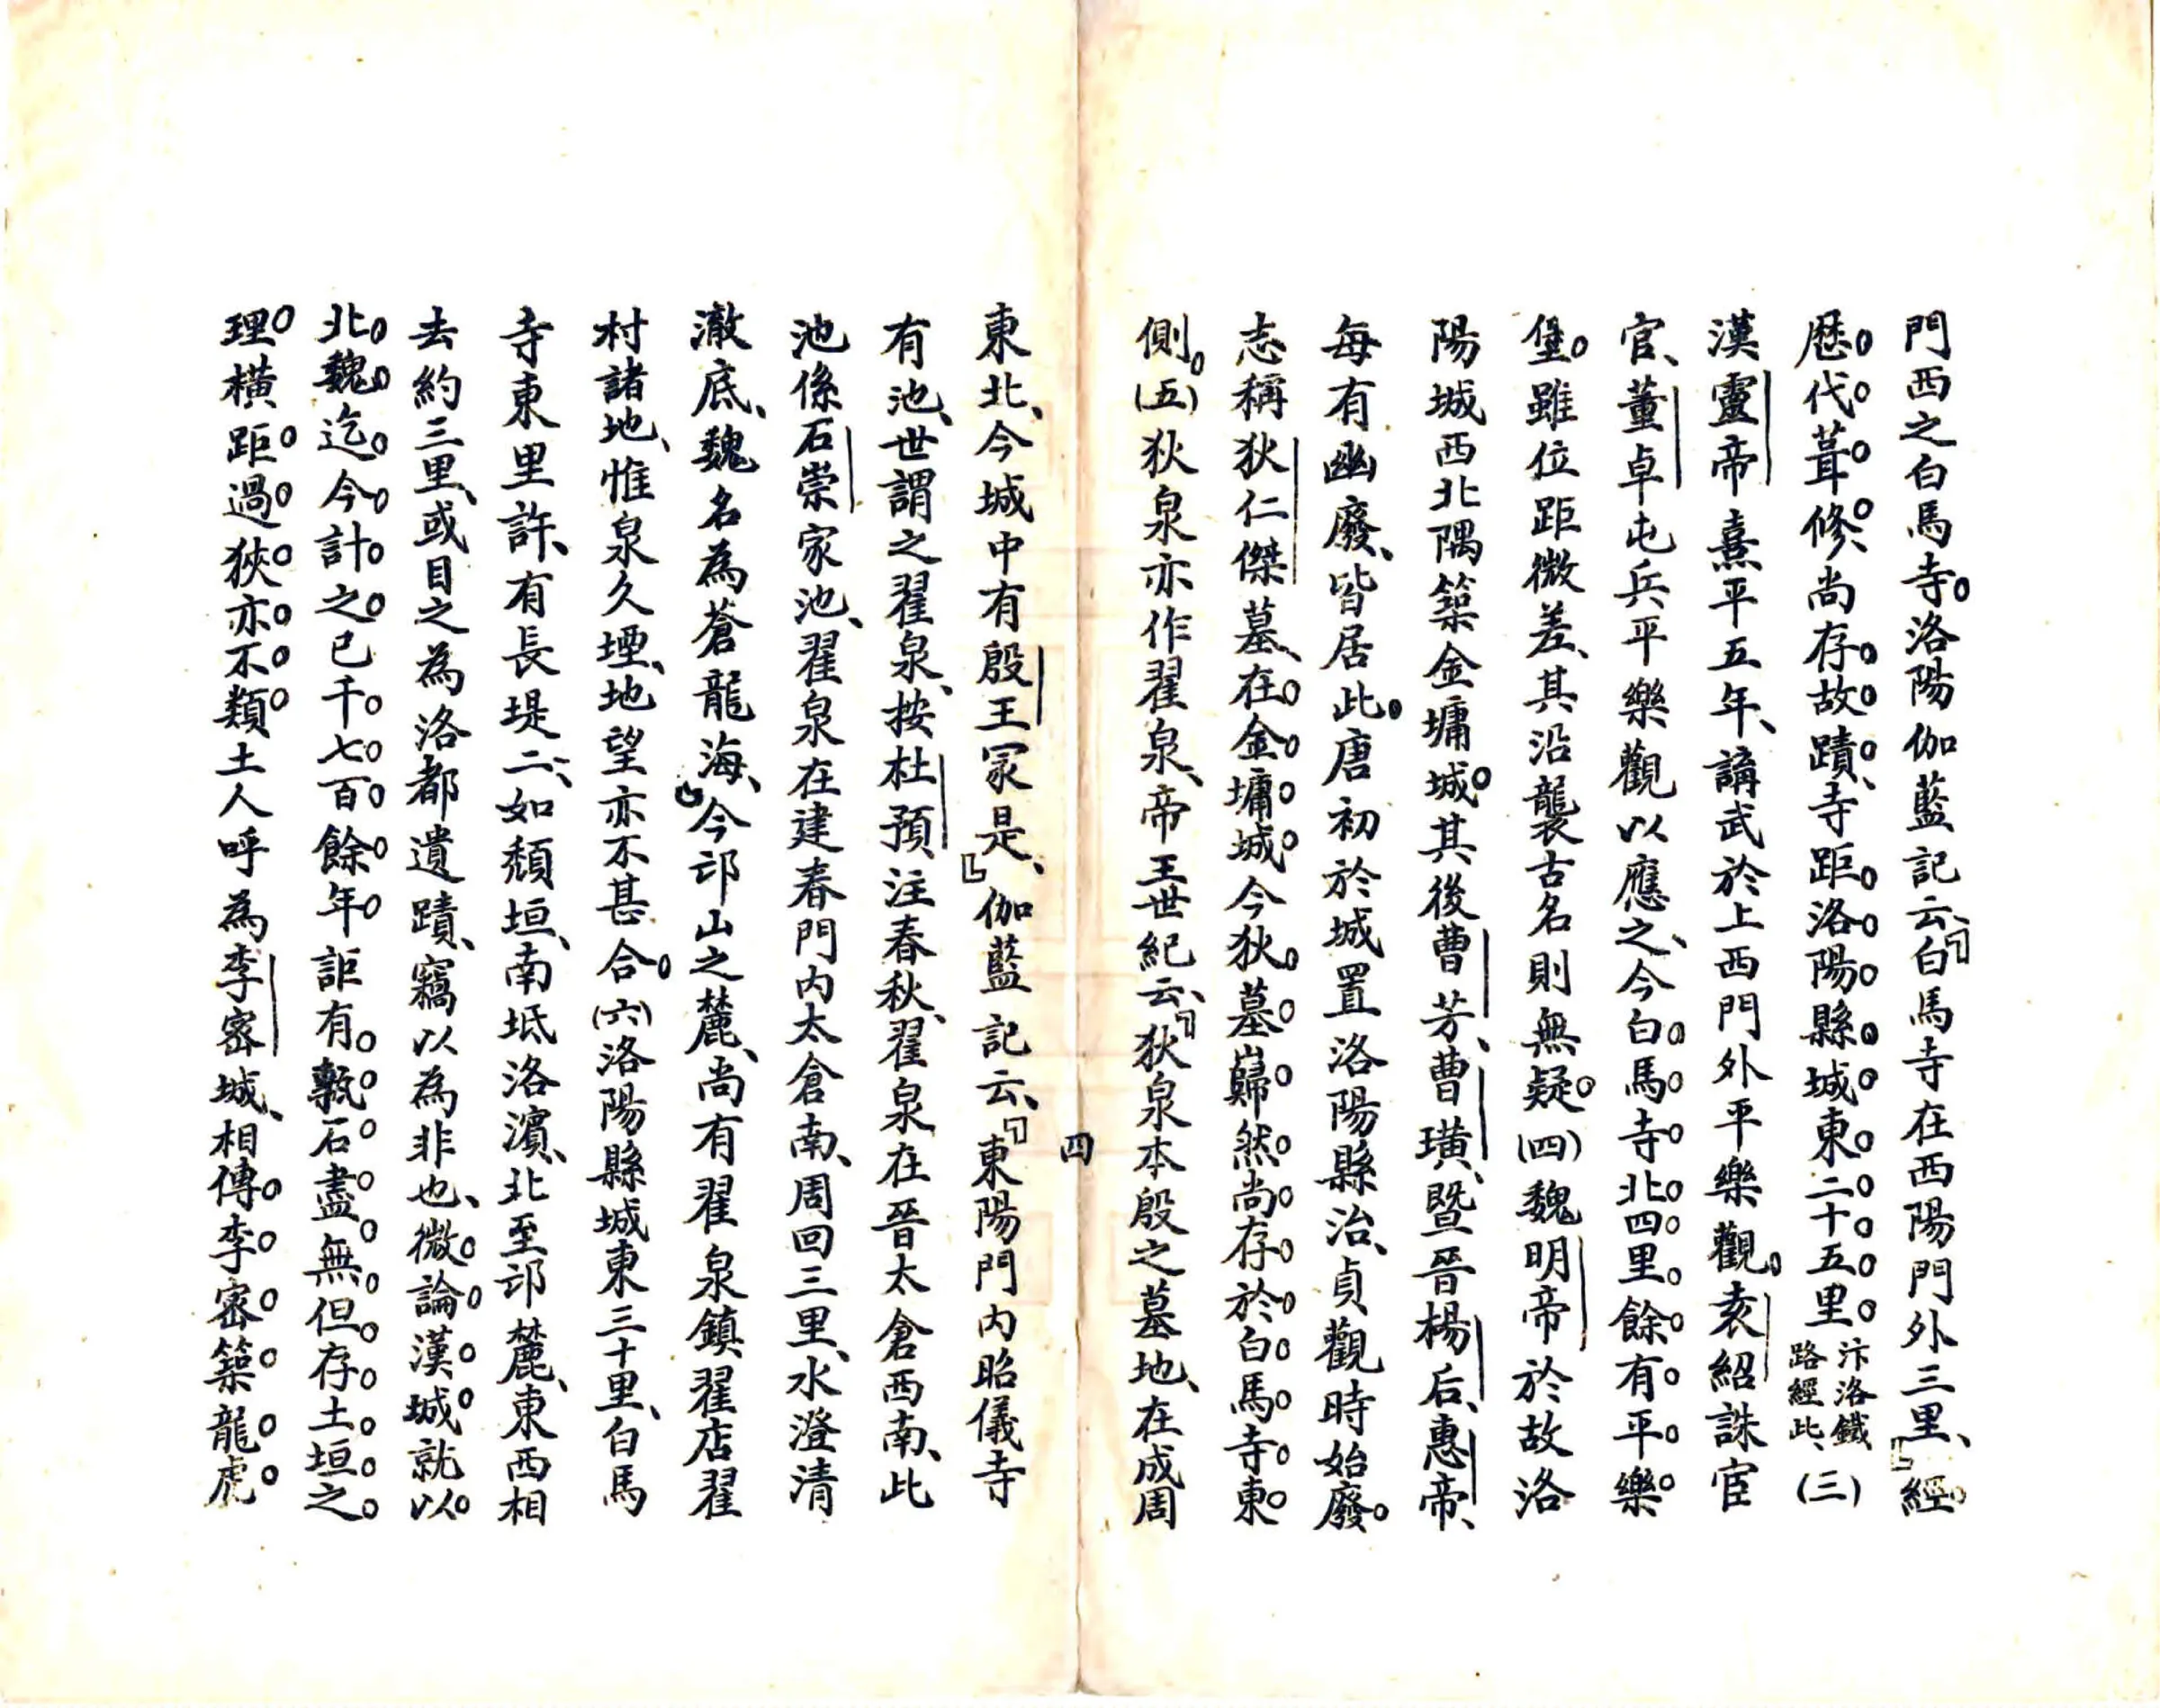 門西之白馬寺。洛陽伽藍記云、「白馬寺在西陽門外三里、」經
歷代葺修、尚存故蹟、寺距洛陽縣城東二十五里。汴洛鐵路經此、(三)
漢靈帝熹平五年、講武於上西門外平樂觀。袁紹誅宦
官、董卓屯兵平樂觀以應之、今白馬寺北四里餘有平樂
堡。雖位距微差、其沿襲古名則無疑。(四)魏明帝於故洛
陽城西北隅築金墉城。其後曹芳、曹璜、暨晉楊后、惠帝、
每有幽廢、皆居此。唐初於城置洛陽縣治、貞觀時始廢。
志稱狄仁傑墓、在金墉城、今狄墓巋然尚存於白馬寺東
側。(五)狄泉亦作翟泉、帝王世紀云、「狄泉本殷之墓地、在成周
四
東北、今城中有殷王冢是、」伽藍記云、「東陽門內昭儀寺
有池、世謂之翟泉、按杜預注春秋、翟泉在晉太倉西南、此
池係石崇家池、翟泉在建春門內太倉南、周回三里、水澄清
澈底、魏名為蒼龍海、」今邙山之麓、尚有翟泉鎮翟店翟
村諸地、惟泉久堙、地望亦不甚合。(六)洛陽縣城東三十里、白馬
寺東里許、有長堤二、如頹垣、南坻洛濱、北至邙麓、東西相
去約三里、或目之為洛都遺蹟、竊以為非也、微論漢城就以
北魏迄今計之已千七百餘年詎有甎石盡無但存土垣之
理橫距過狹亦不類土人呼為李密城、相傳李密築龍虎